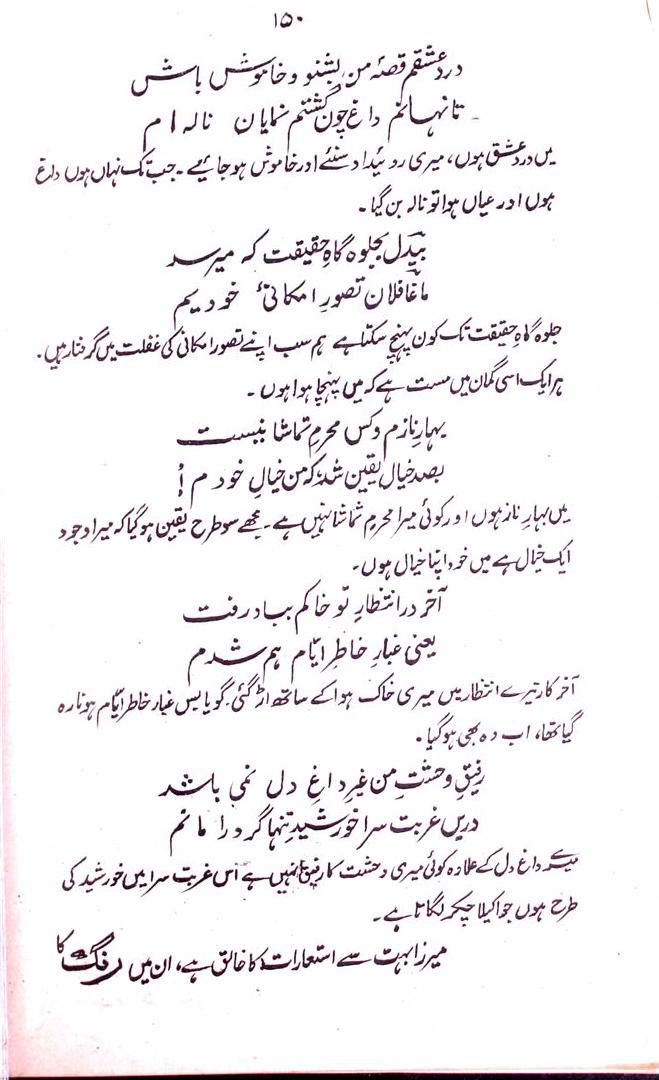 ۱۵۰
درد عشقم قصۂ من بشنو و خاموش باش
تا نہانم داغ چون گشتم نمایان نالہ ام
میں درد عشق ہوں، میری روئیداد سنئے اور خاموش ہو جائیے۔ جب تک نہاں ہوں داغ
ہوں اور عیاں ہوا تو نالہ بن گیا۔
بیدل بجلوہ گاہِ حقیقت کہ میرسد
ما غافلان تصورِ امکانیٔ خودیم
جلوہ گاہِ حقیقت تک کون پہنچ سکتا ہے ہم سب اپنے تصور امکانی کی غفلت میں گرفتار ہیں۔
ہر ایک اسی گمان میں مست ہے کہ میں پہنچا ہوا ہوں۔
بہارِ نازم و کس محرمِ تماشا نیست
بصد خیال یقین شد کہ من خیالِ خودم !
میں بہارِ ناز ہوں اور کوئی میرا محرم تماشا نہیں ہے۔ مجھے سو طرح یقین ہو گیا کہ میرا وجود
ایک خیال ہے میں خود اپنا خیال ہوں۔
آخر در انتظارِ تو خاکم بباد رفت
یعنی غبارِ خاطرِ ایّام ہم شدم
آخر کار تیرے انتظار میں میری خاک ہوا کے ساتھ اڑ گئی۔ گویا بس غبار خاطر ایّام ہونا رہ
گیا تھا، اب وہ بھی ہو گیا۔
رفیقِ وحشتِ من غیرِ داغِ دل نمی باشد
دریں غربت سرا خورشیدِ تنہا گرد را مانم
میرے داغ دل کے علاوہ کوئی میری وحشت کا رفیق نہیں ہے اس غربت سرا میں خورشید کی
طرح ہوں جو اکیلا چکر لگاتا ہے۔
میرزا بہت سے استعارات کا خالق ہے، ان میں رنگ کا